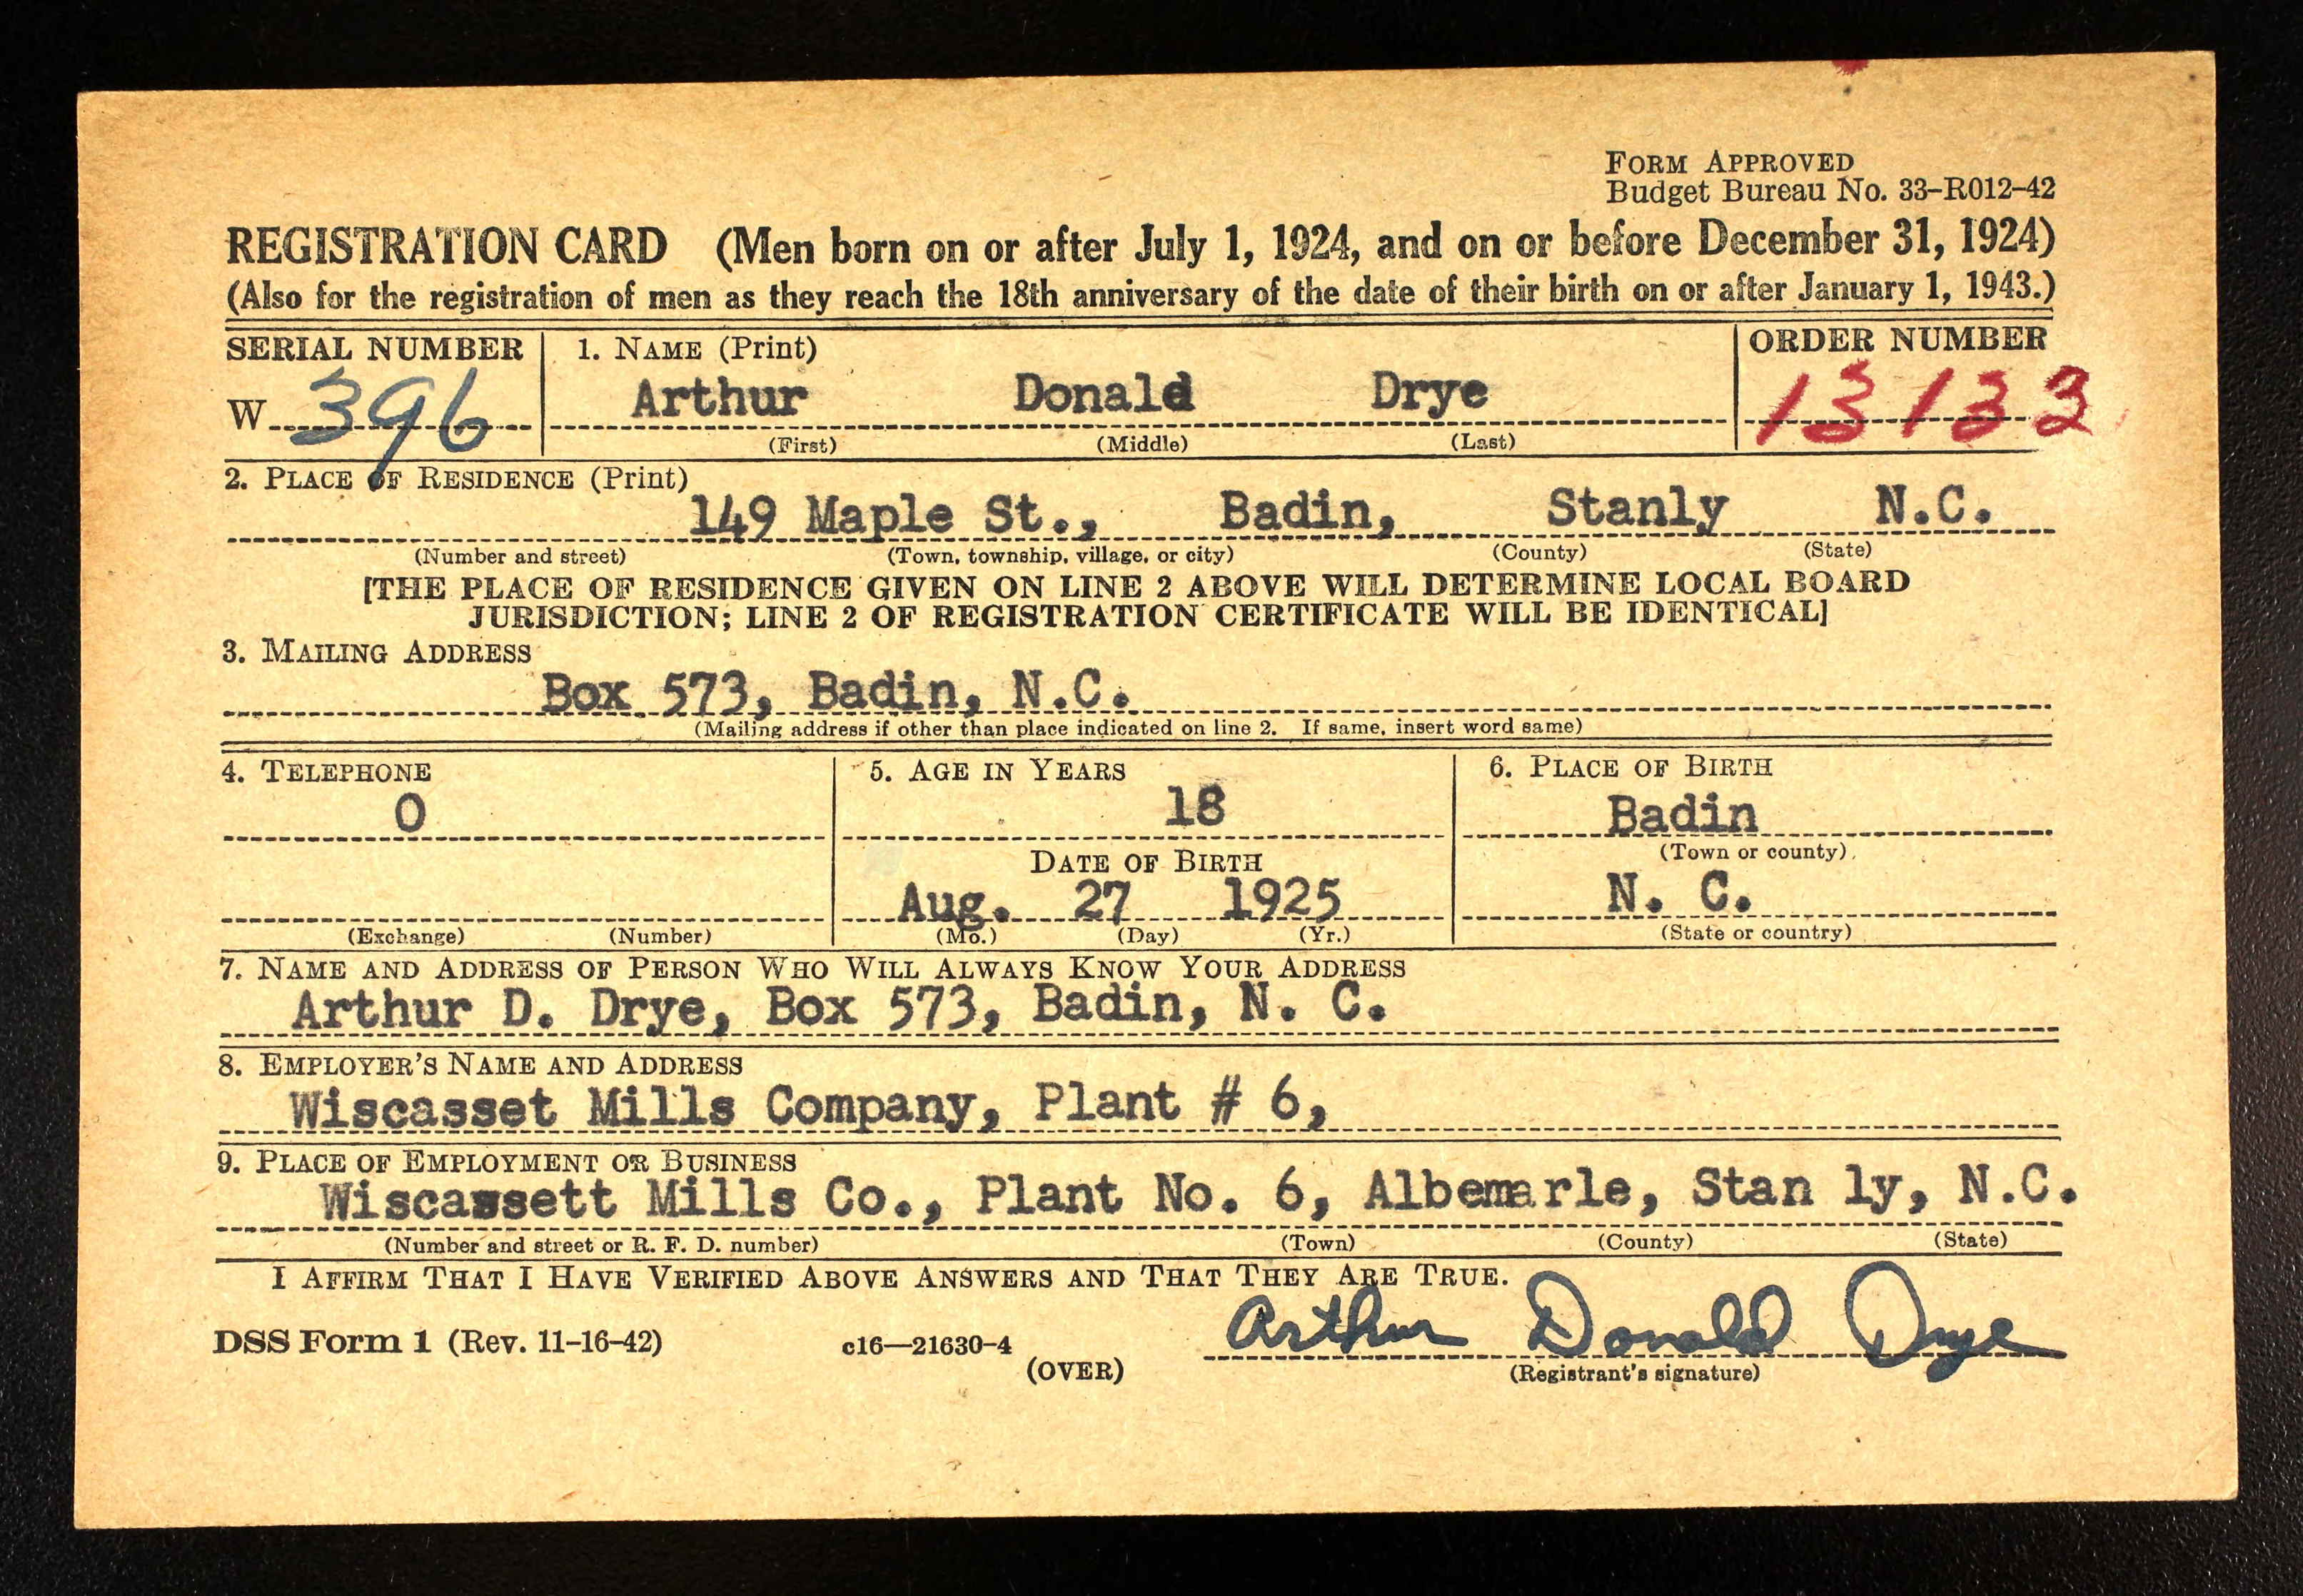 FORM APPROVED
Budget Bureau No. 33-R012-42
REGISTRATION CARD (Men born on or after July 1, 1924, and on or before December 31, 1924)
(Also for the registration of men as they reach the 18th anniversary of the date of their birth on or after January 1, 1943.)
SERIAL NUMBER 1. NAME (Print) ORDER NUMBER
W 396 Arthur Donald Drye 13133
(First) (Middle) (Last)
2. PLACE OF RESIDENCE (Print)
149 Maple St., Badin, Stanly N.C.
(Number and street) (Town, township, village, or city) (County) (State)
[THE PLACE OF RESIDENCE GIVEN ON LINE 2 ABOVE WILL DETERMINE LOCAL BOARD
JURISDICTION; LINE 2 OF REGISTRATION CERTIFICATE WILL BE IDENTICAL]
3. MAILING ADDRESS
Box 573, Badin, N.C.
(Mailing address if other than place indicated on line 2. If same, insert word same)
4. TELEPHONE 5. AGE IN YEARS 6. PLACE OF BIRTH
0 18 Badin
DATE OF BIRTH (Town or county)
Aug. 27 1925 N. C.
(Exchange) (Number) (Mo.) (Day) (Yr.) (State or country)
7. NAME AND ADDRESS OF PERSON WHO WILL ALWAYS KNOW YOUR ADDRESS
Arthur D. Drye, Box 573, Badin, N. C.
8. EMPLOYER'S NAME AND ADDRESS
Wiscasset Mills Company, Plant # 6,
9. PLACE OF EMPLOYMENT OR BUSINESS
Wiscassett Mills Co., Plant No. 6, Albemarle, Stan ly, N.C.
(Number and street or R. F. D. number) (Town) (County) (State)
I AFFIRM THAT I HAVE VERIFIED ABOVE ANSWERS AND THAT THEY ARE TRUE.
Arthur Donald Drye
DSS Form 1 (Rev. 11-16-42) c16—21630-4
(OVER) (Registrant's signature)